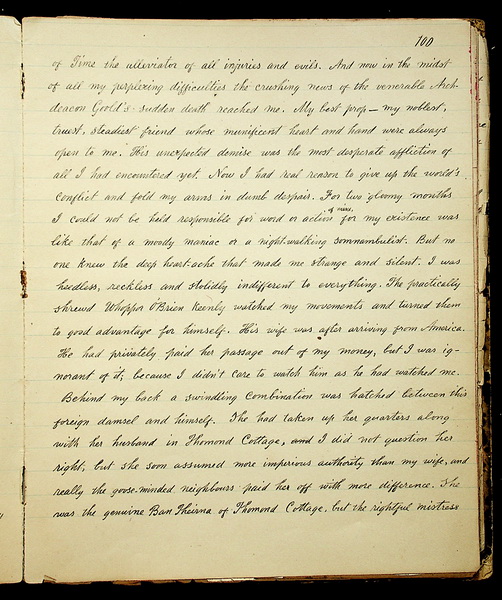 100
of Time the alleviator of all injuries and evils. And now in the midst
of all my perplexing difficulties the crushing news of the venerable Arch-
deacon Goold's sudden death reached me. My best prop — my noblest,
truest, steadiest friend whose munificent heart and hand were always
open to me. His unexpected demise was the most desperate affliction of
all I had encountered yet. Now I had real reason to give up the world's
conflict and fold my arms in dumb despair. For two gloomy months
I could not be held responsible for word or action of mine for my existence was
like that of a moody maniac or a night-walking somnambulist. But no
one knew the deep heart-ache that made me strange and silent. I was
heedless, reckless and stolidly indifferent to everything. The practically
shrewd Whopper O'Brien keenly watched my movements and turned them
to good advantage for himself. His wife was after arriving from America.
He had privately paid her passage out of my money, but I was ig-
norant of it; because I didn't care to watch him as he had watched me.
Behind my back a swindling combination was hatched between this
foreign damsel and himself. She had taken up her quarters along
with her husband in Thomond Cottage, and I did not question her
right, but she soon assumed more imperious authority than my wife, and
really the goose-minded neighbours paid her off with more difference. She
was the genuine Ban Theirna of Thomond Cottage, but the rightful mistress